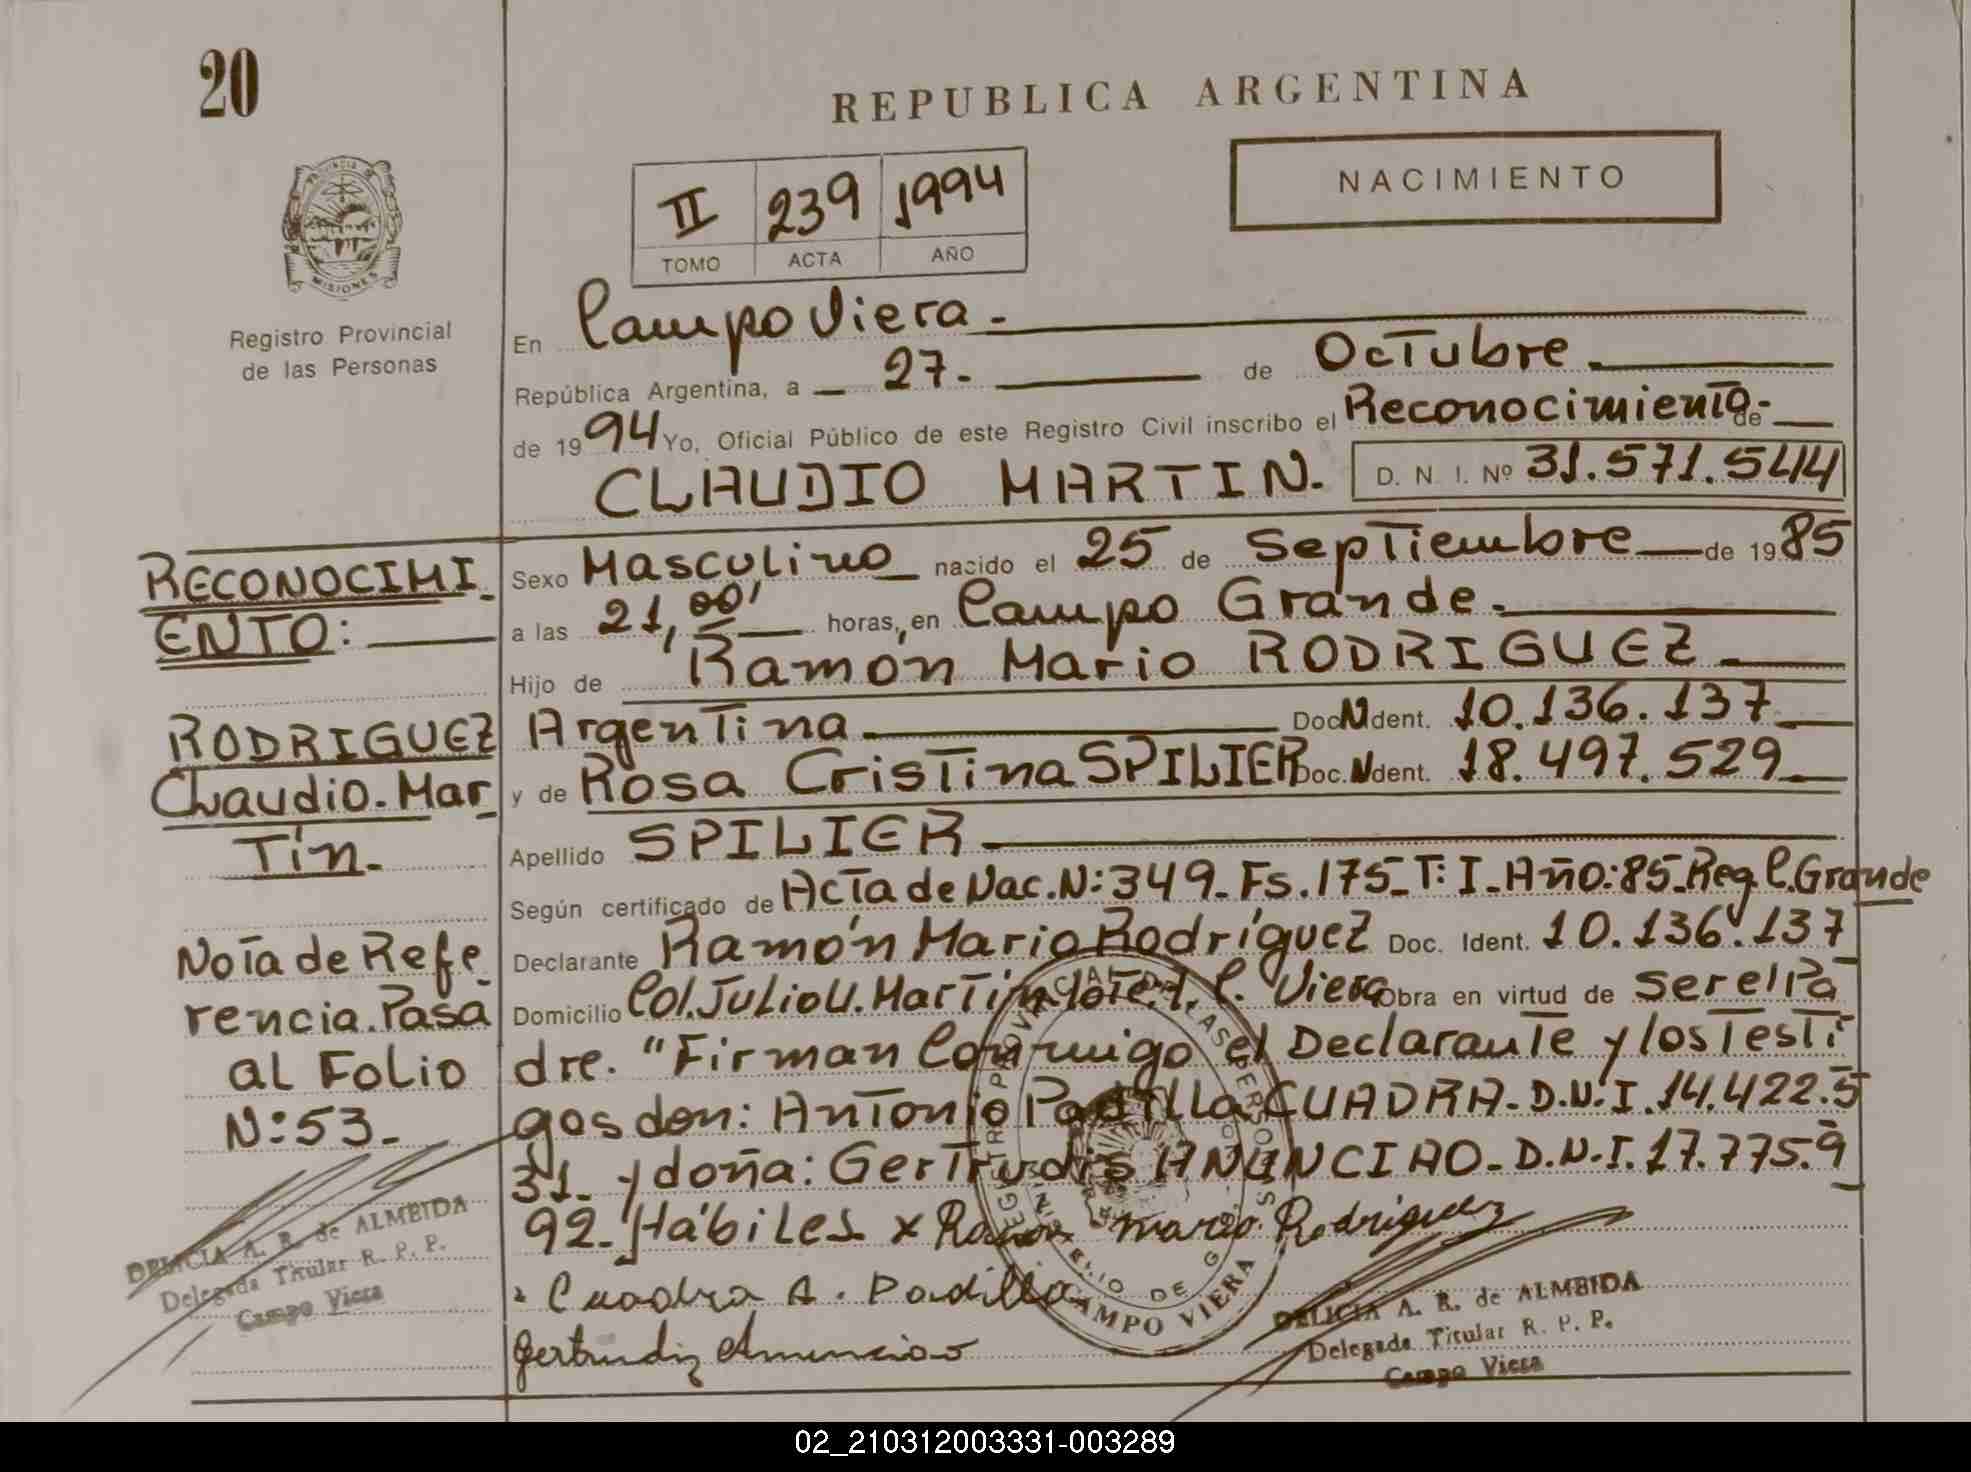 20
REPUBLICA ARGENTINA
NACIMIENTO
II 239 1994
TOMO ACTA AÑO
PROVINCIA DE
MISIONES
Registro Provincial
de las Personas
En Campo Viera.-
República Argentina, a 27.- de Octubre
de 1994 Yo, Oficial Público de este Registro Civil inscribo el Reconocimiento- de
CLAUDIO MARTIN. D. N. I. Nº 31.571.544
Sexo Masculino nacido el 25 de Septiembre de 1985
a las 21,00' horas, en Campo Grande.
Hijo de Ramón Mario RODRIGUEZ
Argentina Doc. Ident. 10.136.137
y de Rosa Cristina SPILIER Doc. Ident. 18.497.529
Apellido SPILIER
Según certificado de Acta de Nac. N: 349- Fs. 175- T: I- Año: 85- Reg. C. Grande
Declarante Ramón Mario Rodríguez Doc. Ident. 10.136.137
Domicilio Col. Julio U. Martin lote.1. C. Viera Obra en virtud de ser el Pa
dre. "Firman Conmigo el Declarante y los Testi
gos don: Antonio Padilla CUADRA- D.N.I. 14.422.5
31- y doña: Gertrudis ANUNCIAO- D.N.I. 17.775.9
92- Hábiles x Ramon mario Rodriguez
Cuadra A. Padilla
Gertrudiz Anunciao
RECONOCIMI
ENTO:
RODRIGUEZ
Claudio-Mar
tín-
Nota de Refe
rencia. Pasa
al Folio
N: 53-
DELICIA A. R. de ALMEIDA
Delegada Titular R. P. P.
Campo Viera
REGISTRO PROVINCIAL DE LAS PERSONAS
CAMPO VIERA
DELICIA A. R. de ALMEIDA
Delegada Titular R. P. P.
Campo Viera
02_210312003331-003289